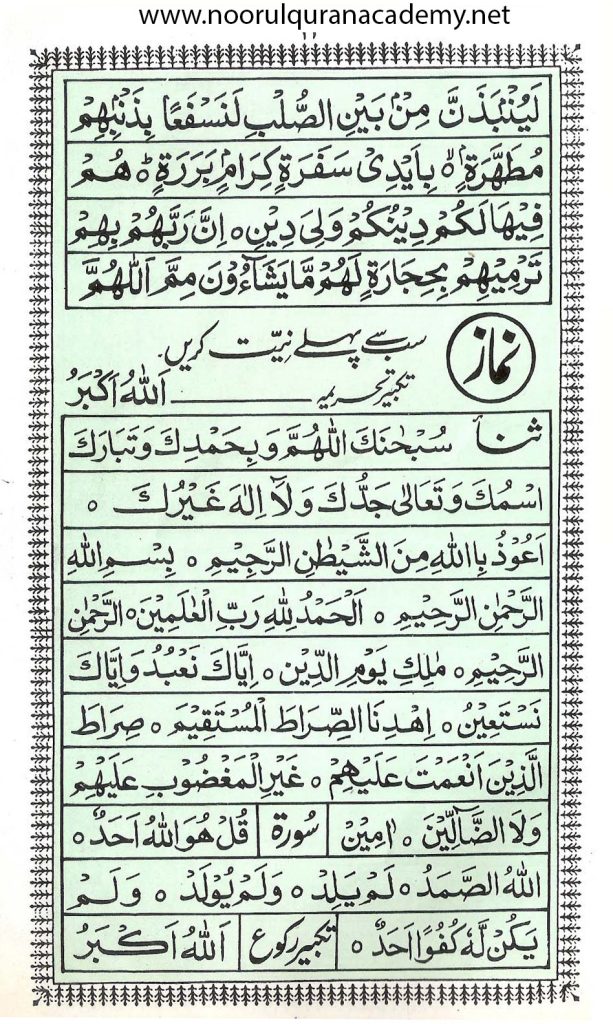 www.noorulquranacademy.net
١١
لَيُنْۢبَذَنَّ مِنْۢ بَيْنِ الصُّلْبِ لَنَسْفَعًاۢ بِذَنْۢبِهِمْ
مُطَهَّرَةٍۭ ۙ بِاَيْدِىْ سَفَرَةٍ كِرَامٍۭ بَرَرَةٍ ؕ هُمْ
فِيْهَا لَكُمْ دِيْنُكُمْ وَلِىَ دِيْنِ ○ اِنَّ رَبَّهُمْ بِهِمْ
تَرْمِيْهِمْ بِحِجَارَةٍ لَهُمْ مَّا يَشَآءُوْنَ مِمَّ اَللّٰهُمَّ
نماز سب سے پہلے نیّت کریں۔
تکبیر تحریمہ ــــــــــــــ اَللّٰهُ اَكْبَرُ
ثنأ سُبْحٰنَكَ اللّٰهُمَّ وَبِحَمْدِكَ وَتَبَارَكَ
اسْمُكَ وَتَعَالٰى جَدُّكَ وَلَآ اِلٰهَ غَيْرُكَ ○
اَعُوْذُ بِاللّٰهِ مِنَ الشَّيْطٰنِ الرَّجِيْمِ ○ بِسْمِ اللّٰهِ
الرَّحْمٰنِ الرَّحِيْمِ ○ اَلْحَمْدُ لِلّٰهِ رَبِّ الْعٰلَمِيْنَ ○ الرَّحْمٰنِ
الرَّحِيْمِ ○ مٰلِكِ يَوْمِ الدِّيْنِ ○ اِيَّاكَ نَعْبُدُ وَاِيَّاكَ
نَسْتَعِيْنُ ○ اِهْدِنَا الصِّرَاطَ الْمُسْتَقِيْمَ ○ صِرَاطَ
الَّذِيْنَ اَنْعَمْتَ عَلَيْهِمْ ○ غَيْرِ الْمَغْضُوْبِ عَلَيْهِمْ
وَلَا الضَّآلِّيْنَ ○ اٰمِيْن سُوْرَة قُلْ هُوَ اللّٰهُ اَحَدٌ ○
اَللّٰهُ الصَّمَدُ ○ لَمْ يَلِدْ ○ وَلَمْ يُوْلَدْ ○ وَلَمْ
يَكُنْ لَّهٗ كُفُوًا اَحَدٌ ○ تکبیر رکوع اَللّٰهُ اَكْبَرُ